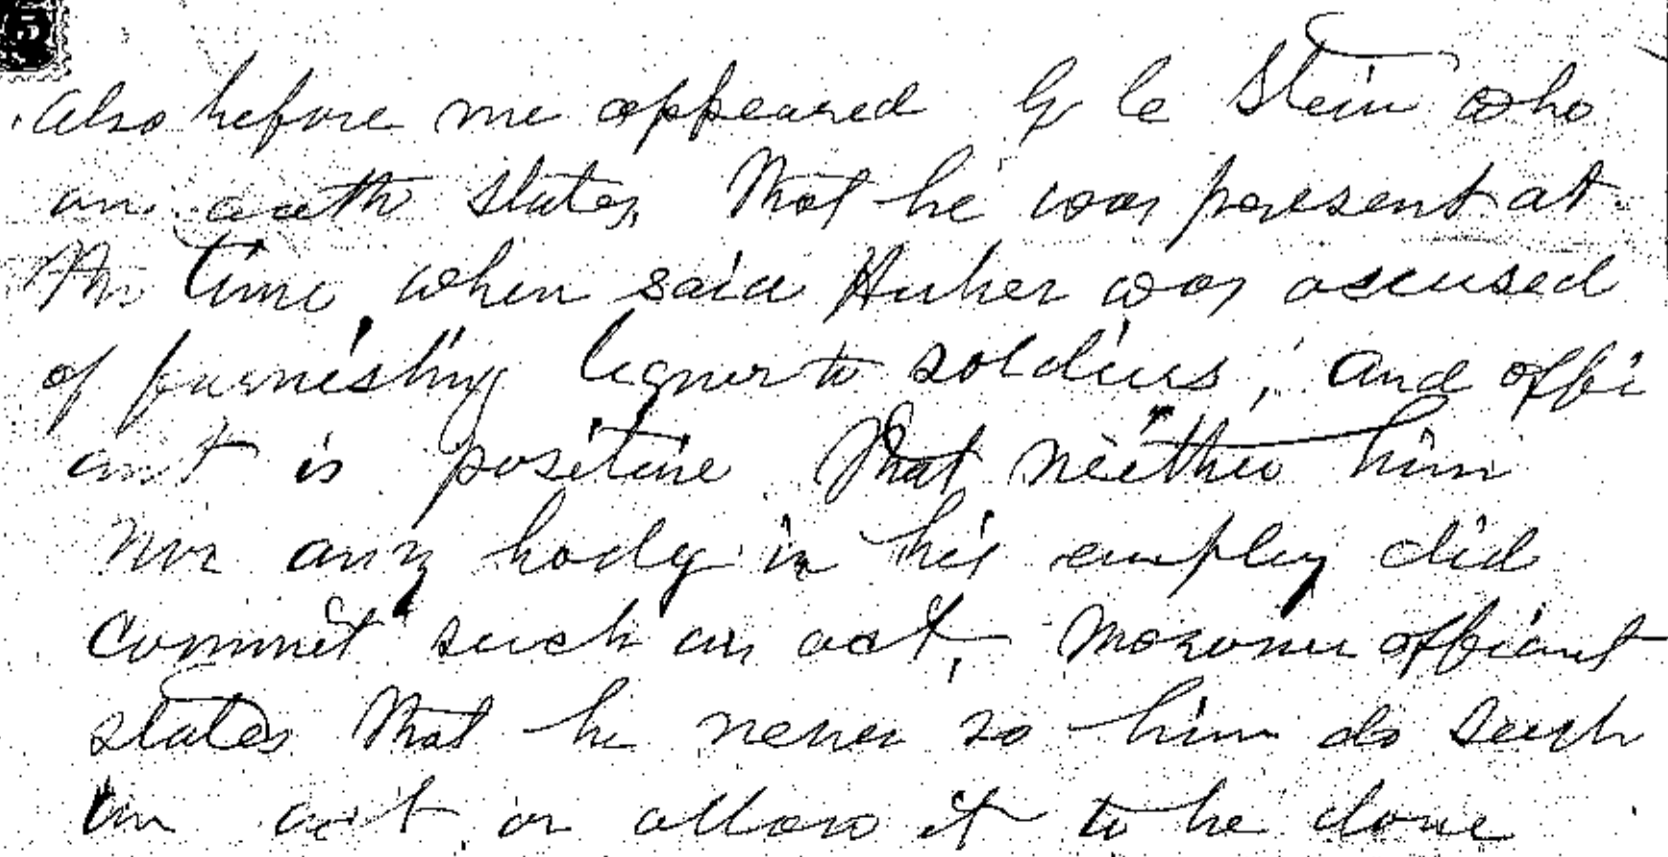 5
Also before me appeared G C Stein who
on oath states, that he was present at
the time when said Huber was accused
of furnishing liquor to soldiers, and affi
ant is positive that neither him
nor any body in his employ did
commit such an act, moreover affiant
states that he never so him do such
an act or allow it to be done